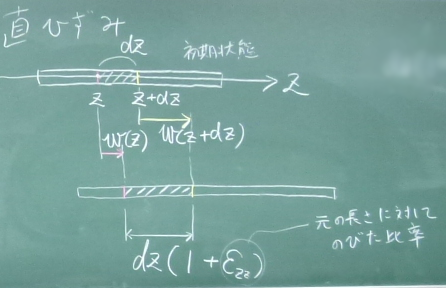 直ひずみ
dz
初期状態
z
z z+dz
w(z) w(z+dz)
元の長さに対して
のびた比率
dz(1+εzz)